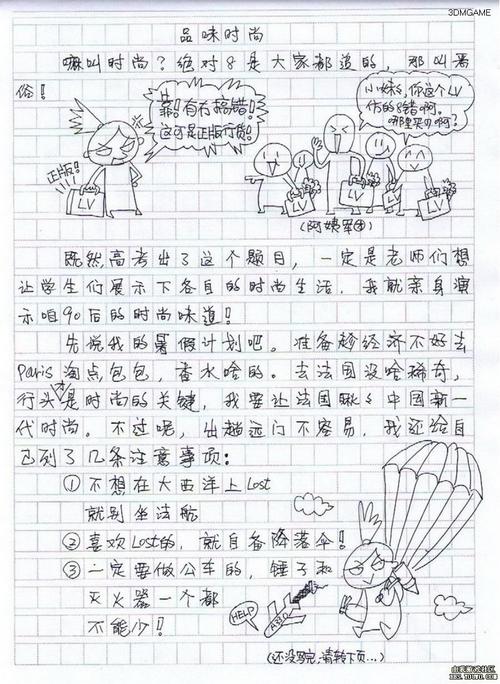 3DMGAME
品味时尚
嘛叫时尚？绝对8是大家都追的，那叫恶
俗！
靠！有冇搞错！
这可是正版行货！
正版！
LV
小妹，你这个LV
仿的8错啊。
哪里买的啊？
LV
LV
LV
LV
(阿姨军团)
既然高考出了这个题目，一定是老师们想
让学生们展示下各自的时尚生活，我就亲身演
示咱90后的时尚味道！
先说我的暑假计划吧。准备趁经济不好去
Paris淘点包包，香水啥的。去法国没啥稀奇，
行头才是时尚的关键，我要让法国瞅瞅中国新一
代时尚。不过呢，出趟远门不容易，我还给自
己列了几条注意事项：
①不想在大西洋上Lost
就别坐法航
②喜欢Lost的，就自备降落伞！
③一定要做公车的，锤子和
灭火器一个都
不能少！
HELP
A330
(还没写完，请转下页...)